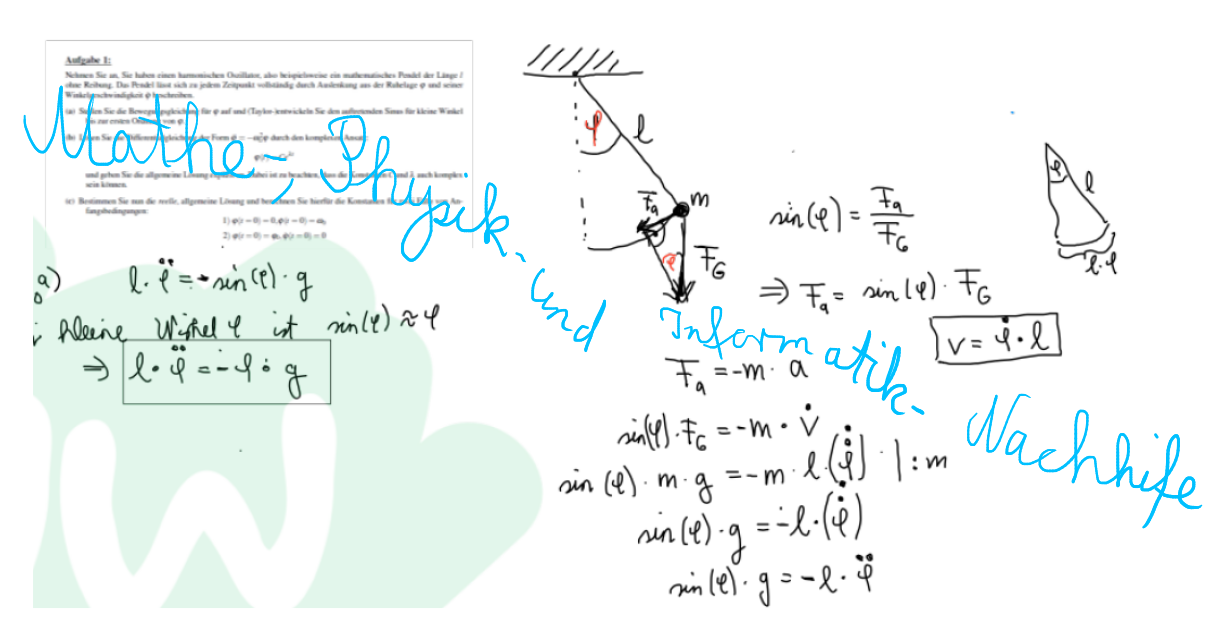 Aufgabe 1:
Nehmen Sie an, Sie haben einen harmonischen Oszillator, also beispielsweise ein mathematisches Pendel der Länge l
ohne Reibung. Das Pendel lässt sich zu jedem Zeitpunkt vollständig durch Auslenkung aus der Ruhelage φ und seiner
Winkelgeschwindigkeit φ̇ beschreiben.
(a) Stellen Sie die Bewegungsgleichung für φ auf und (Taylor-)entwickeln Sie den auftretenden Sinus für kleine Winkel
bis zur ersten Ordnung von φ.
(b) Lösen Sie die Differentialgleichung der Form durch den komplexen Ansatz
und geben Sie die allgemeine Lösung Dabei ist zu beachten, dass die Konstanten C und λ auch komplex
sein können.
(c) Bestimmen Sie nun die reelle, allgemeine Lösung und berechnen Sie hierfür die Konstanten für die Fälle von An-
fangsbedingungen:
1) φ(t = 0) = 0, φ̇(t = 0) = ω₀
2) φ(t = 0) = φ₀, φ̇(t = 0) = 0
Mathe-, Physik- und Informatik- Nachhife
a) l · φ̈ = - sin(φ) · g
kleine Winkel φ ist sin(φ) ≈ φ
⇒ l · φ̈ = - φ · g
φ
l
m
F_a
φ
F_G
sin(φ) = F_a / F_G
⇒ F_a = sin(φ) · F_G
v = φ̇ · l
φ
l
l · φ
F_a = -m · a
sin(φ) · F_G = -m · v̇
sin(φ) · m · g = -m · l · (φ̇)˙ | : m
sin(φ) · g = -l · (φ̇)˙
sin(φ) · g = -l · φ̈